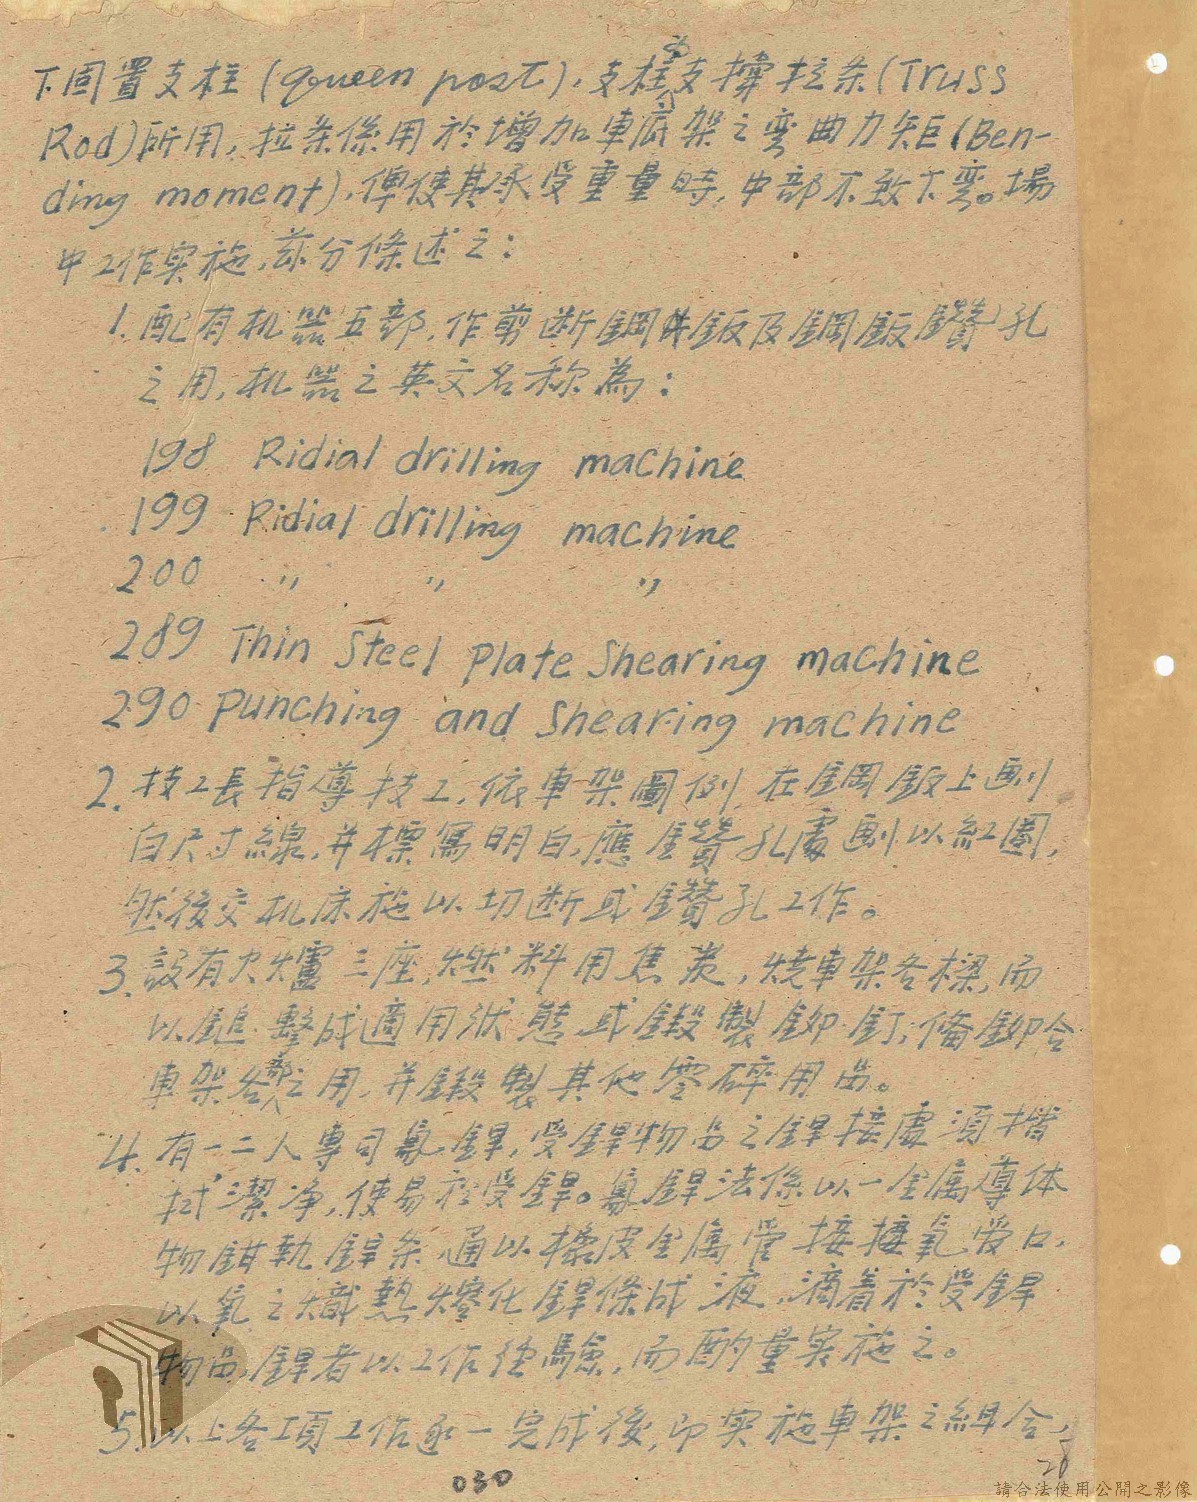 下固置支柱(queen post).支柱中支撐拉条(Truss
Rod)所用,拉条係用於增加車底架之弯曲力矩(Ben-
ding moment),俾使其承受重量時,中部不致下弯。場
中工作实施,茲分條述之:
1.配有机器五部,作剪断鋼鈑及鋼鈑鑽孔
之用,机器之英文名称為:
198 Ridial drilling machine
199 Ridial drilling machine
200 〃 〃 〃
289 Thin Steel Plate Shearing machine
290 Punching and Shearing machine
2.技工長指導技工,依車架圖例,在鋼鈑上劃
白尺寸線,并標寫明白,應鑽孔處劃以紅圈,
然後交机床施以切断或鑽孔工作。
3.設有火爐三座,燃料用焦炭,燒車架各樑,而
以鎚擊成適用狀態或鍛製鉚釘,備鉚合
車架各部之用,并鍛製其他零碎用品。
4.有一二人專司氣銲,受銲物品之銲接處須揩
拭潔净,使易於受銲。氣銲法係以一金属導体
物鉗執銲条,通以橡皮金属管接氧受口,
以氧之熾熱熔化銲條成液,滴着於受銲
物品,銲者以工作經驗,而酌量实施之。
5.以上各項工作逐一完成後,即实施車架之組合,
28
030
請合法使用公開之影像